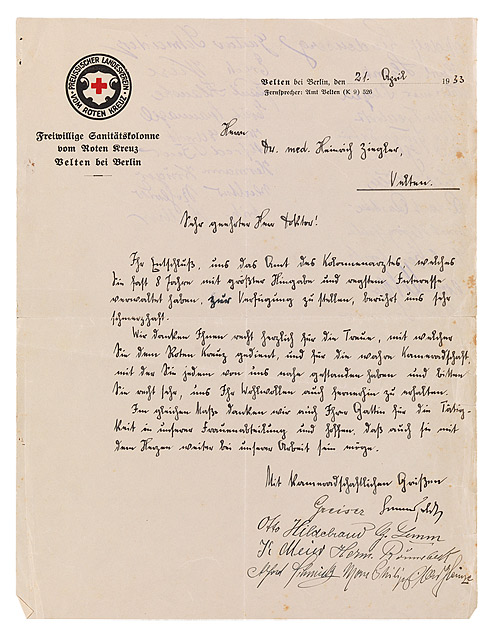 PREUSSISCHER LANDESVEREIN
VOM ROTEN KREUZ
Freiwillige Sanitätskolonne
vom Roten Kreuz
Velten bei Berlin
Velten bei Berlin, den 21. April 1933
Fernsprecher: Amt Velten (K 9) 526
Herrn
Dr. med. Heinrich Ziegler,
Velten.
Sehr geehrter Herr Doktor!
Ihr Entschluß, uns das Amt des Kolonnenarztes, welches
Sie fast 8 Jahre mit größter Hingabe und regstem Interesse
verwaltet haben, zur Verfügung zu stellen, berührt uns sehr
schmerzhaft.
Wir danken Ihnen recht herzlich für die Treue, mit welcher
Sie dem Roten Kreuz gedient, und für die wahre Kameradschaft,
mit der Sie jedem von uns nahe gestanden haben und bitten
Sie recht sehr, uns Ihr Wohlwollen auch fernerhin zu erhalten.
Im gleichen Maße danken wir auch Ihrer Gattin für die Tätig-
keit in unserer Frauenabteilung und hoffen, daß auch sie mit
dem Herzen weiter bei unserer Arbeit sein möge.
Mit kameradschaftlichen Grüßen
Greiser
Otto Hildebrand G. Lemm
K. Meier Herm.
Alfred Schmidt Heinze